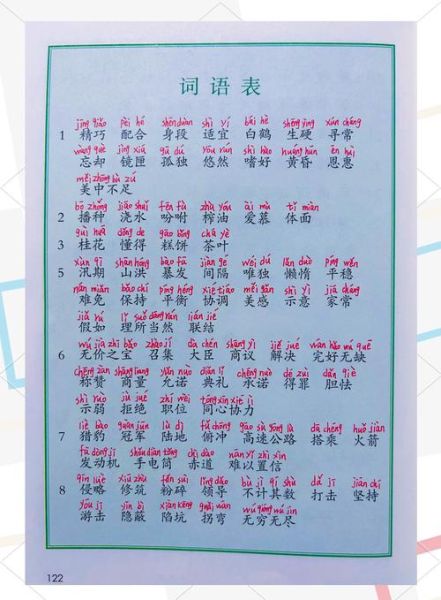 词语表
jīng qiǎo pèi hé shēnduàn shì yí bái hè shēngyìng xún cháng
1 精巧 配合 身段 适宜 白鹤 生硬 寻常
wàng què jìng xiá gū dú yōu rán shì hào huáng hūn ēn huì
忘却 镜匣 孤独 悠然 嗜好 黄昏 恩惠
měi zhōng bù zú
美中不足
bō zhǒng jiāo shuǐ fēn fù zhà yóu ài mù tǐ miàn
2 播种 浇水 吩咐 榨油 爱慕 体面
guì huā dǒng dé gāo bǐng chá yè
3 桂花 懂得 糕饼 茶叶
xùn qī shān hóng bào fā jiàn gé wéi dú lǎn duò píng wěn
5 汛期 山洪 暴发 间隔 唯独 懒惰 平稳
nán miǎn bǎo chí píng héng xié tiáo měi gǎn shì yì jiā cháng
难免 保持 平衡 协调 美感 示意 家常
jiǎ rú lǐ suǒ dāng rán lián jié
假如 理所当然 联结
wú jià zhī bǎo zhào jí dà chén shāng yì jiě jué wán hǎo wú quē
6 无价之宝 召集 大臣 商议 解决 完好无缺
chēng zàn shāng liang yǔn nuò diǎn lǐ chéng nuò dé zuì dǎn qiè
称赞 商量 允诺 典礼 承诺 得罪 胆怯
shì ruò jù jué zhí wèi tóng xīn xié lì
示弱 拒绝 职位 同心协力
liè bào guàn jūn lù dì fǔ chōng gāo sù gōng lù dā chéng huǒ jiàn
7 猎豹 冠军 陆地 俯冲 高速公路 搭乘 火箭
fā dòng jī shǒu diàn tǒng chì dào nán yǐ zhì xìn
发动机 手电筒 赤道 难以置信
qīn lüè xiū zhù fěn suì lǐng dǎo bù jì qí shù dǎ jī jiān chí
8 侵略 修筑 粉碎 领导 不计其数 打击 坚持
yóu jī yǐn bì xiàn kēng guǎi wān wú qióng wú jìn
游击 隐蔽 陷坑 拐弯 无穷无尽
122